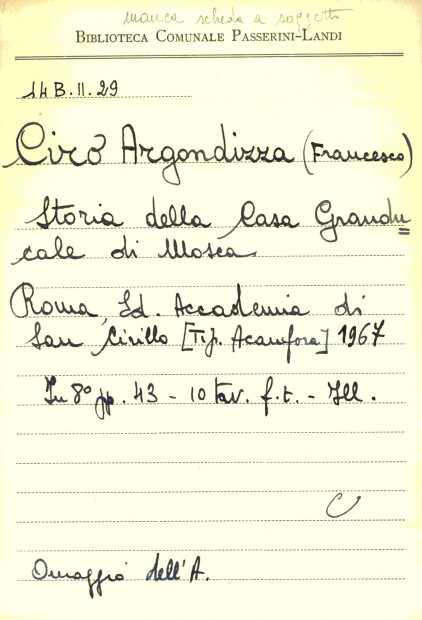 manca scheda a soggetti
BIBLIOTECA COMUNALE PASSERINI-LANDI
14 B. II. 29
Cirò Argondizza (Francesco)
Storia della Casa Grandu=
cale di Mosca
Roma, Ed. Accademia di
San Cirillo [Tip. Acampora] 1967
In 8° pp. 43 - 10 tav. f. t. - Ill.
C
Omaggio dell'A.